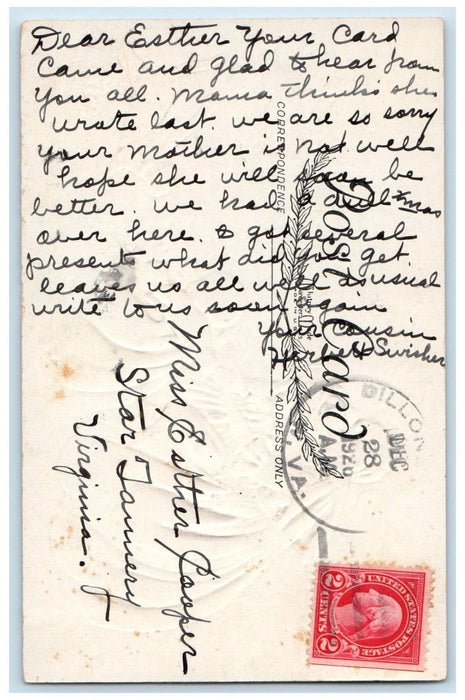 Dear Esther Your Card
Came and glad to hear from
you all. Mama thinks she
wrote last. we are so sorry
your mother is not well
hope she will soon be
better. we had a dull Xmas
over here. I got several
present what did you get
leaves us all well as usual
write to us soon again
your cousin
Herbert Swisher
CORRESPONDENCE
Post Card
ADDRESS ONLY
Miss Esther Cooper
Star Tannery
Virginia.
DILLON
DEC
28
AM
1926
W. VA.
UNITED STATES POSTAGE
2 CENTS 2